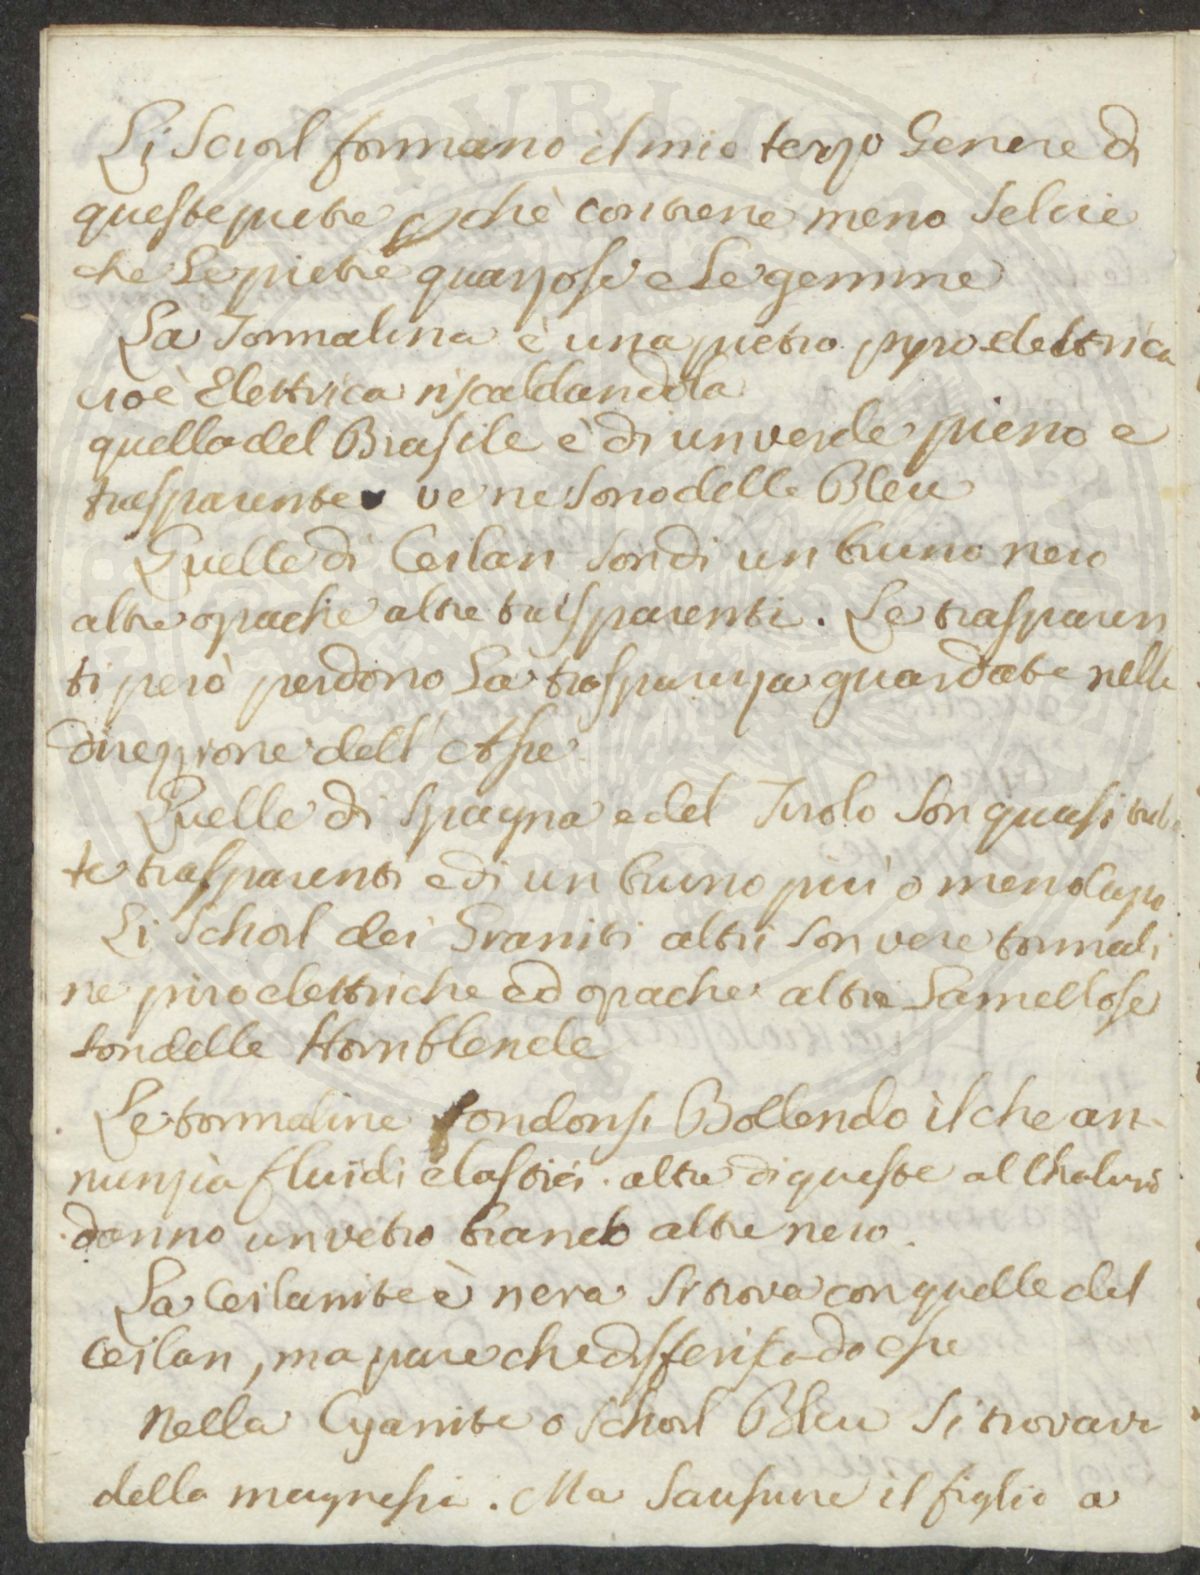 Li Scorl formano il mio terzo Genere di
queste pietre p chè contiene meno Selcie
che Le pietre quarzose e Le gemme
La Tormalina è una pietra pyro-elettrica
cioè Elettrica riscaldandola
quella del Brasile è di un verde pieno e
trasparente ve ne sono delle Bleu
Quelle di Ceilan son di un bruno nero
altre opache altre trasparenti. Le trasparen
ti però perdono La trasparenza guardate nella
direzzione dell' Asse
Quelle di Spagna e del Tirolo son quasi tut
te trasparenti e di un bruno più o meno cupo
Li Schorl dei Graniti altri son vere tormali
ne piroelettriche ed opache altre Lamellose
son delle Hornblende
Le tormaline fondonsi Bollendo il che an-
nunzia fluidi elastici. altre di queste al
danno un vetro bianco altre nero.
La Ceilanite è nera si trova con quelle del
Ceilan, ma pare che differisca da esse
Nella Cyanite o Schorl Bleu si trovava
della magnesia. Ma Sausure il figlio a